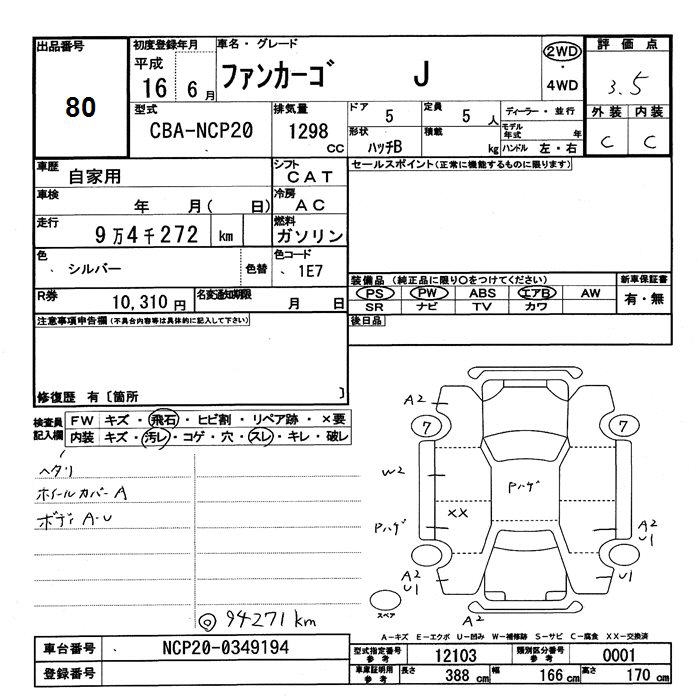 出品番号
80
初度登録年月
平成
16 6月
車名・グレード
ファンカーゴ J
2WD
・
4WD
評価点
3.5
外装 内装
C C
型式
CBA-NCP20
排気量
1298 CC
ドア 5
定員 5人
ディーラー・並行
形状 ハッチB
積載 kg
モデル年式 年
ハンドル 左・右
車歴
自家用
シフト
CAT
セールスポイント(正常に機能するものに限ります)
車検
年 月( 日)
冷房
AC
走行
9万4千272 km
燃料
ガソリン
色
シルバー
色替
色コード
1E7
装備品 (純正品に限り○をつけてください)
新車保証書
PS PW ABS エアB AW
有・無
SR ナビ TV カワ
R券
10,310円
名変通知期限
月 日
後日品
注意事項申告欄(不具合内容等は具体的に記入して下さい)
修復歴 有〔箇所 〕
検査員記入欄
FW キズ・飛石・ヒビ割・リペア跡・×要
内装 キズ・汚レ・コゲ・穴・スレ・キレ・破レ
ヘタリ
ホイールカバーA
ボディA-U
◎ 94271km
A2
7
7
W2
Pハゲ
XX
Pハゲ
A2
U1
A2
U1
U1
スペア
A2
A-キズ E-エクボ U-凹み W-補修跡 S-サビ C-腐食 XX-交換済
車台番号
NCP20-0349194
登録番号
型式指定番号 参考
12103
類別区分番号 参考
0001
車庫証明用 参考
長さ 388 cm
幅 166 cm
高さ 170 cm